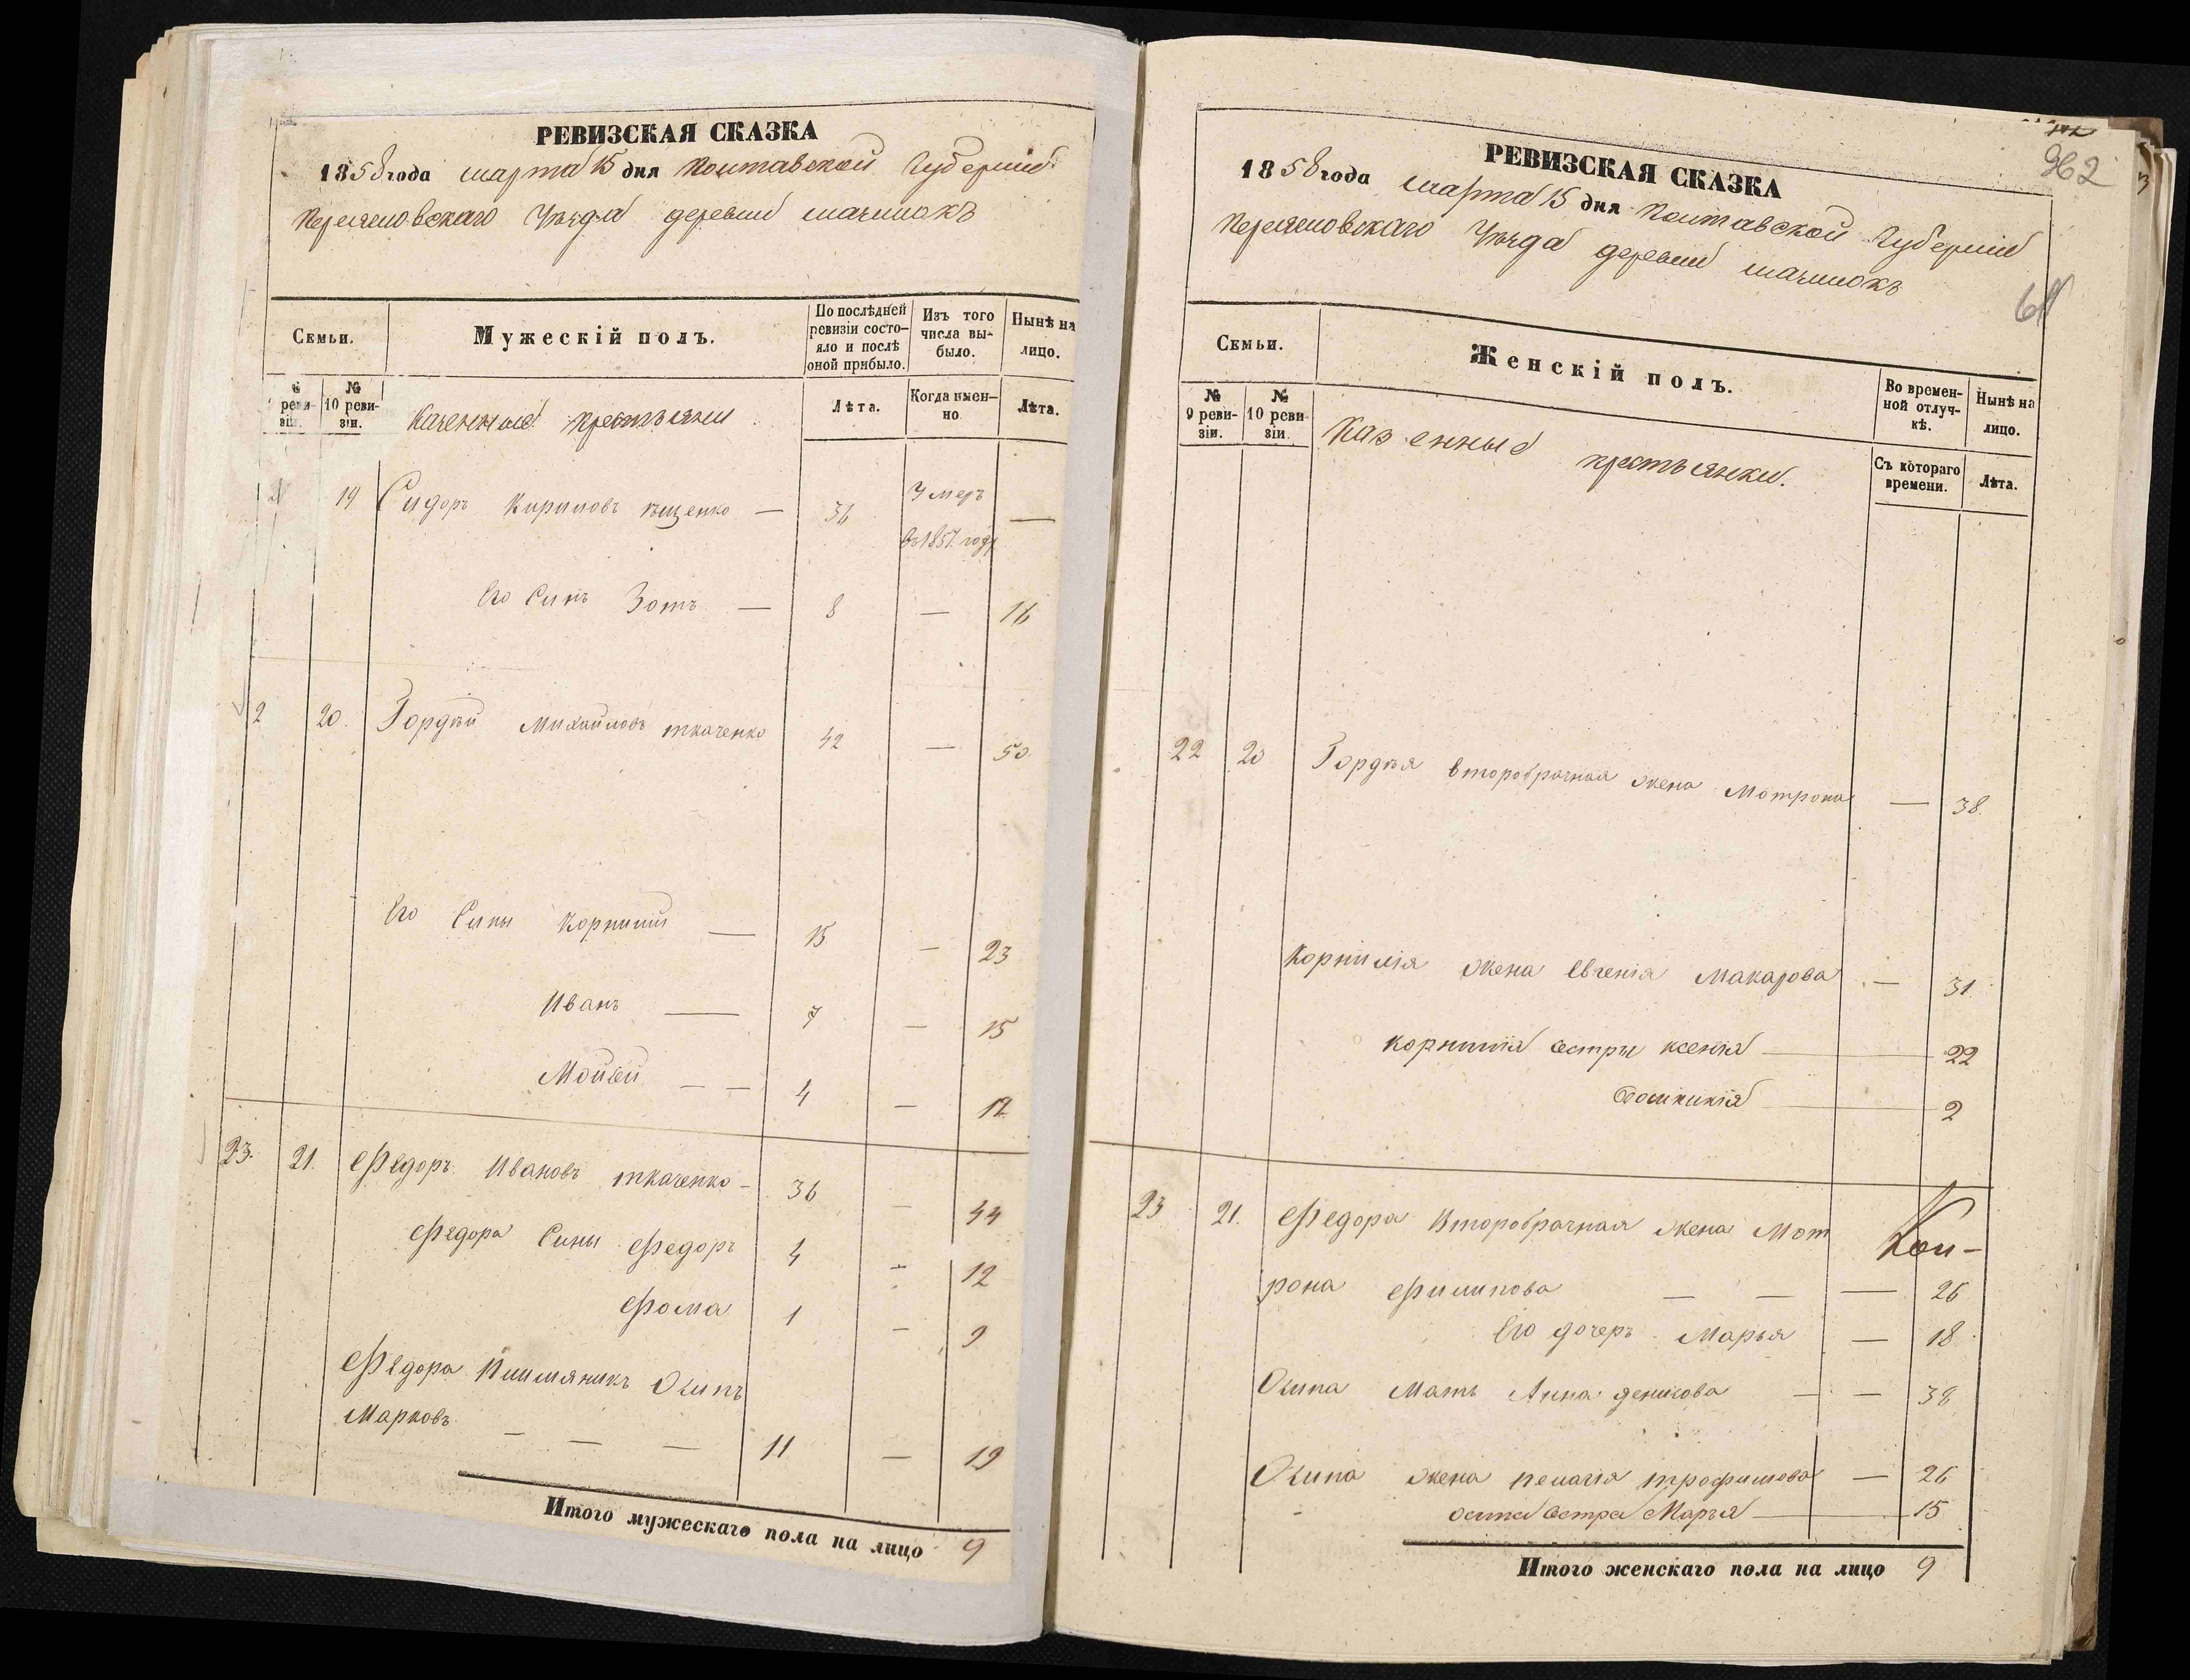 РЕВИЗСКАЯ СКАЗКА
1858 года марта 15 дня Полтавской Губерніи
Переясловскаго Уѣзда деревни
Семьи.
Мужескій полъ.
По послѣдней ревизіи состо-яло и послѣ оной прибыло.
Изъ того числа вы-было.
Нынѣ на лицо.
№ реви-зіи.
№ 10 реви-зіи.
Казенные крестьяни
Лѣта.
Когда имен-но
Лѣта.
19 Сидоръ Кириловъ — 36 Умеръ въ 1857 году —
Его Синъ Зотъ — 8 — 16
2 20. Гордѣй Михайловъ ткаченко 42 — 50.
Его Сины Корнилій — 15 — 23
Иванъ — 7 — 15
Мойсей — — 4 — 12
23. 21. Федоръ Ивановъ ткаченко — 36 — 44
Федора Сины Федоръ 4 — 12
Фома 1 — 9
Федора Племяникъ Осипъ
Марковъ — — — 11 — 19
Итого мужескаго пола на лицо 9
962
РЕВИЗСКАЯ СКАЗКА
1858 года марта 15 дня Полтавской Губерніи
Переясловскаго Уѣзда деревни
Семьи.
Женскій полъ.
Во времен-ной отлуч-кѣ.
Нынѣ на лицо.
№ 9 реви-зіи.
№ 10 реви-зіи.
Казенные крестьянки.
Съ котораго времени.
Лѣта.
22 20 Гордѣя второбрачная жена Мотрона — 38
Корнилія жена Евгенія Макарова — 31
Корнилія сестры Ксенія — 22
2
23 21. Федора Второбрачная жена Мот
рона Филипова — — — 26
Его дочеръ Марья — 18
Осипа Мать Анна денисова — — 38
Осипа жена пелагія трофимова — 26
осипа сестра Марья — 15
Итого женскаго пола на лицо 9